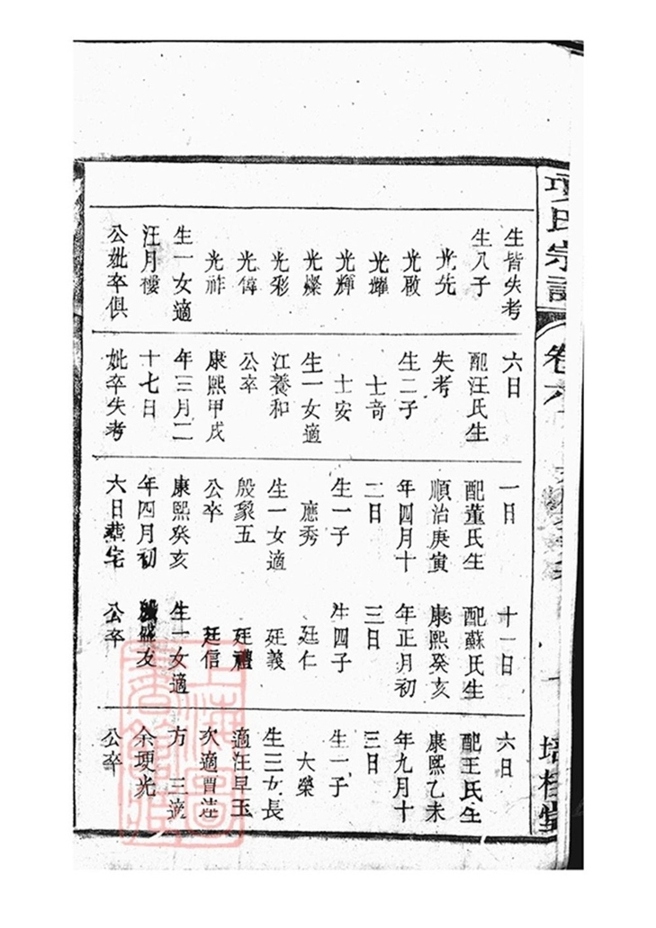 項氏宗譜
卷六
培桂堂
生皆失考
生八子
光先
光啟
光耀
光輝
光燦
光彩
光
光祚
生一女適
汪月樓
公妣卒俱
六日
配汪氏生
失考
生二子
士奇
士安
生一女適
江養和
公卒
康熙甲戌
年三月二
十七日
妣卒失考
一日
配董氏生
順治庚寅
年四月十
二日
生一子
應秀
生一女適
殷象五
公卒
康熙癸亥
年四月初
六日葬宅
十一日
配蘇氏生
康熙癸亥
年正月初
三日
生四子
廷仁
廷義
廷禮
廷信
生一女適
友
公卒
六日
配王氏生
康熙乙未
年九月十
三日
生一子
大榮
生三女長
適汪早玉
次適賈
方 三適
余埂光
公卒